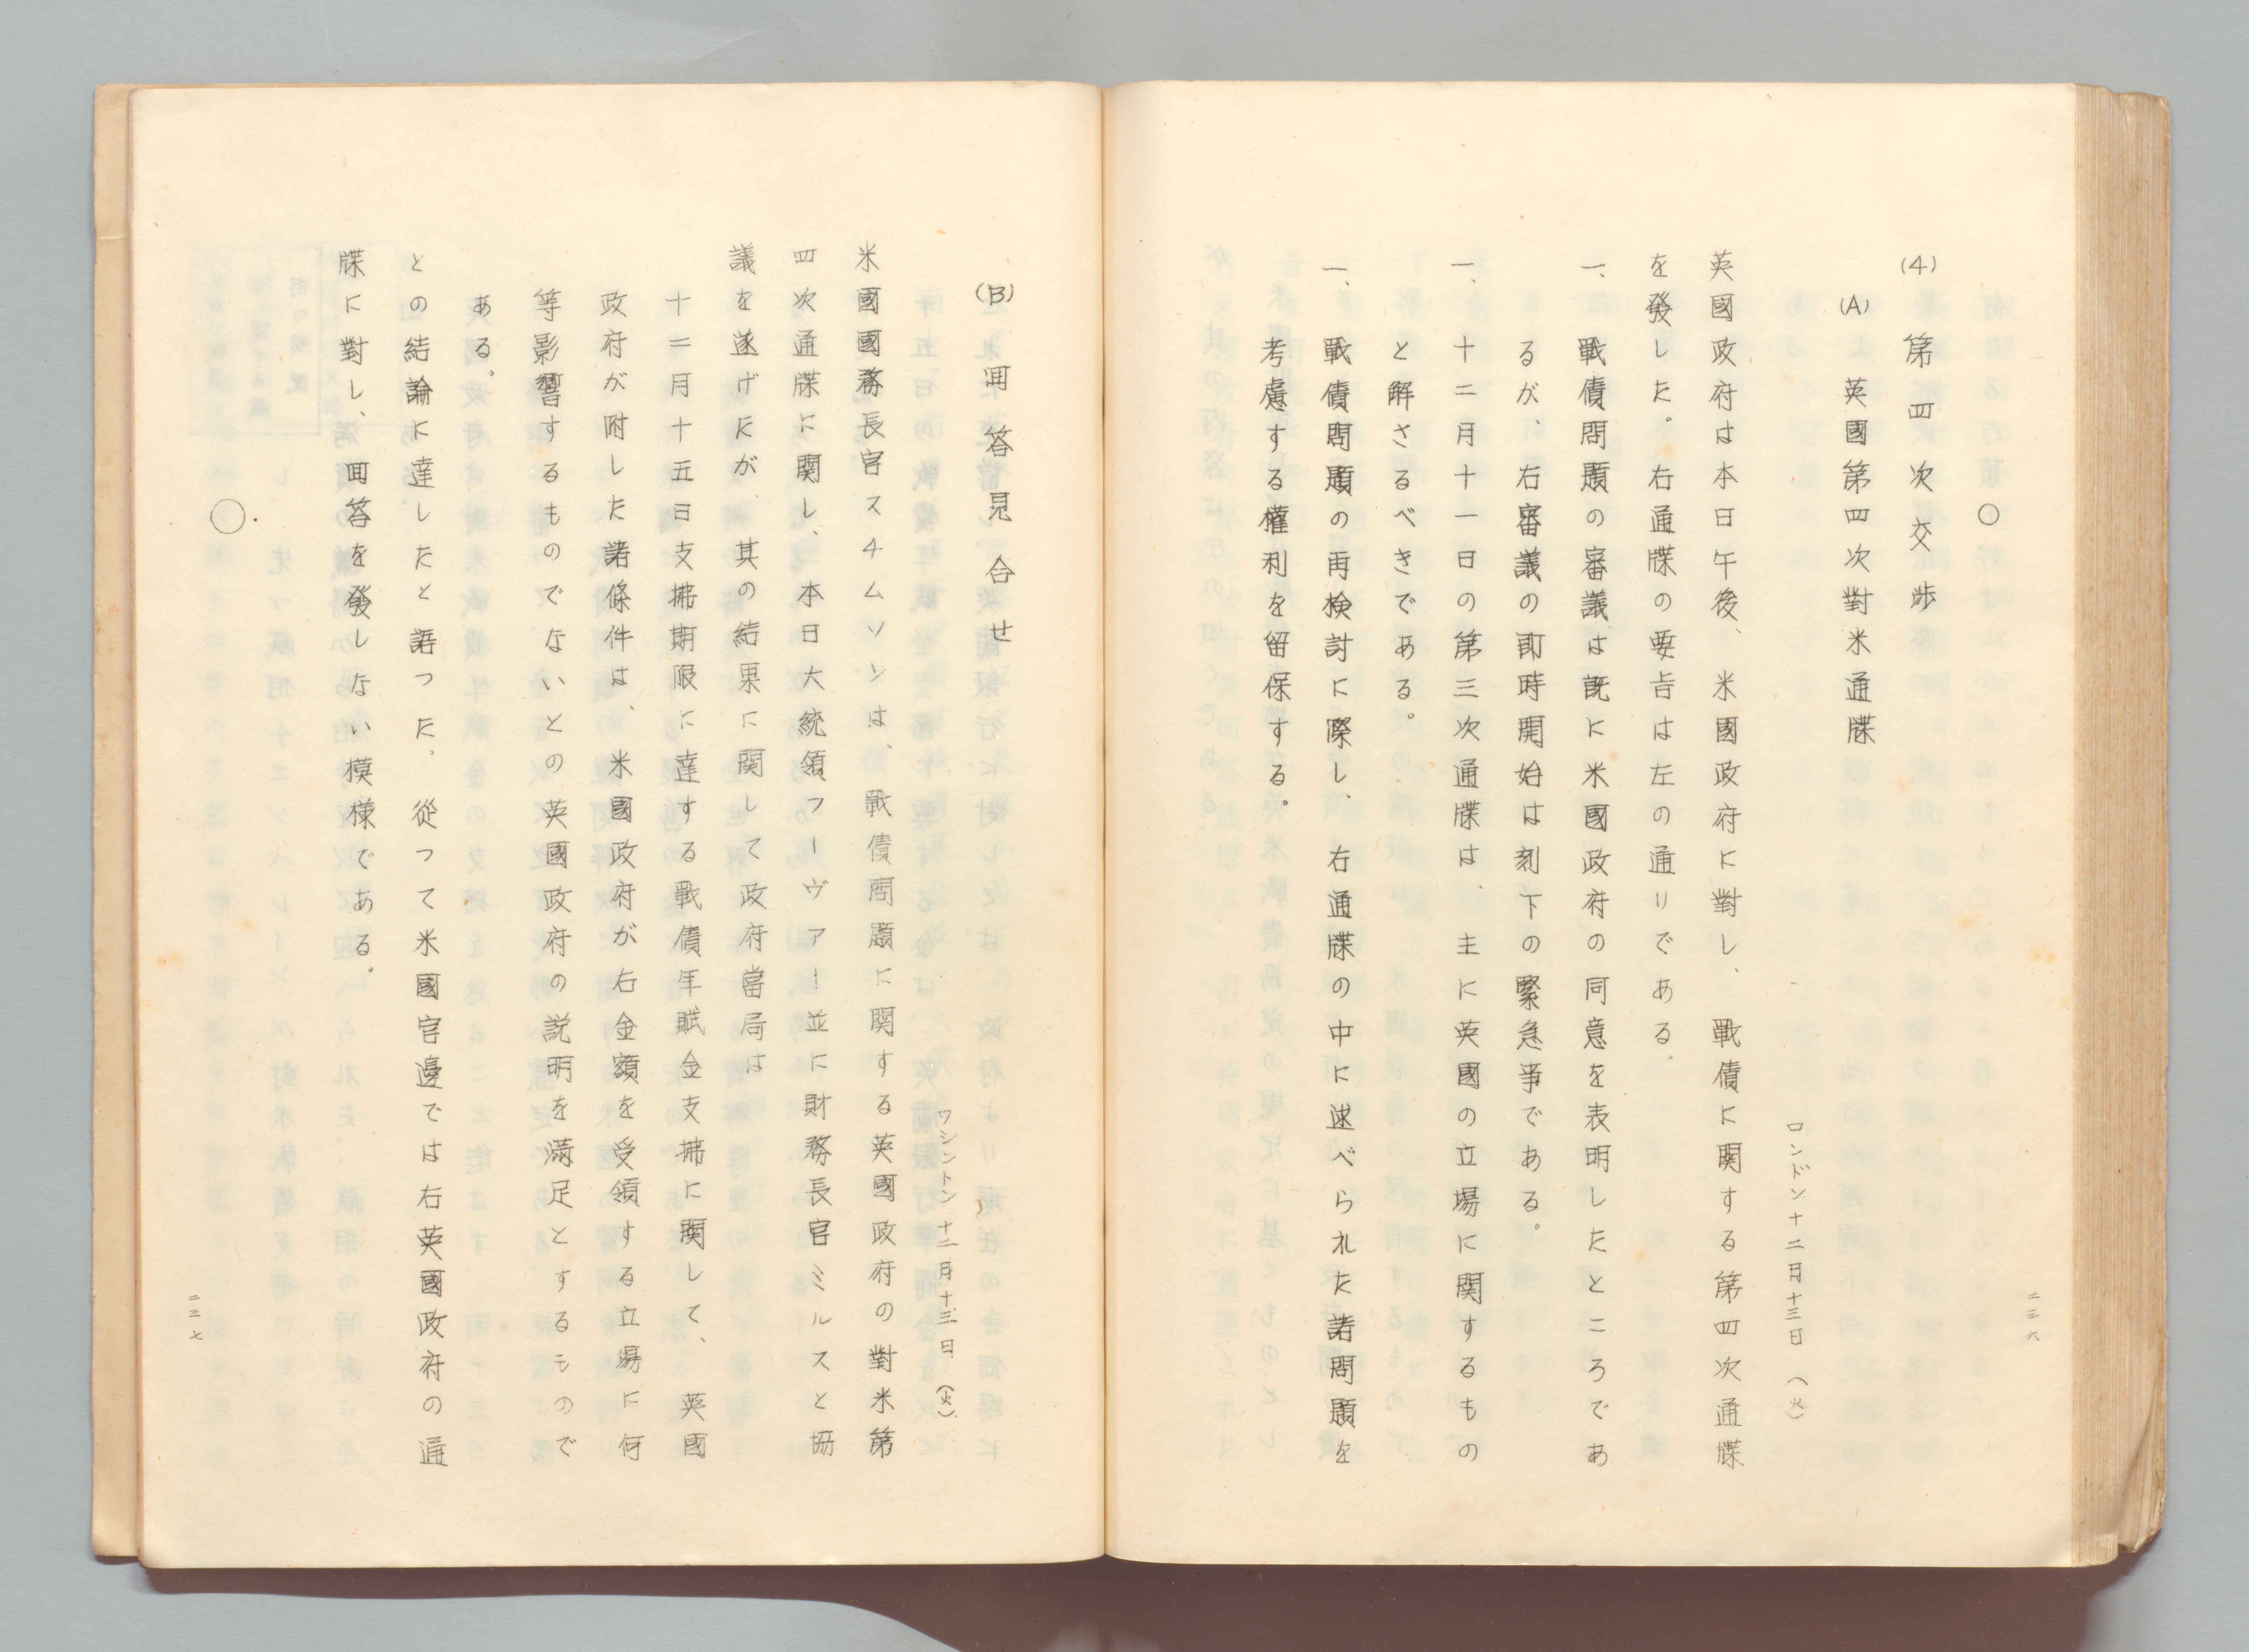 ○
(4) 第四次交渉
(A) 英國第四次對米通牒
ロンドン十二月十三日（火）
英國政府は本日午後、米國政府に對し、戰債に関する第四次通牒
を發した。右通牒の要旨は左の通りである。
一、戰債問題の審議は既に米國政府の同意を表明したところであ
るが、右審議の即時開始は刻下の緊急事である。
一、十二月十一日の第三次通牒は、主に英國の立場に関するもの
と解さるべきである。
一、戰債問題の再検討に際し、右通牒の中に述べられた諸問題を
考慮する権利を留保する。
二三六
(B) 回答見合せ
ワシントン十二月十三日（火）
米國國務長官スチムソンは、戰債問題に関する英國政府の對米第
四次通牒に関し、本日大統領フーヴァー並に財務長官ミルスと協
議を遂げにが、其の結果に関して政府當局は
十二月十五日支拂期限に達する戰債年賦金支拂に関して、英國
政府が附した諸條件は、米國政府が右金額を受領する立場に何
等影響するものでないとの英國政府の説明を滿足とするもので
ある。
との結論に達したと語つた。從つて米國官邊では右英國政府の通
牒に對し、回答を發しない模様である。
○
二三七